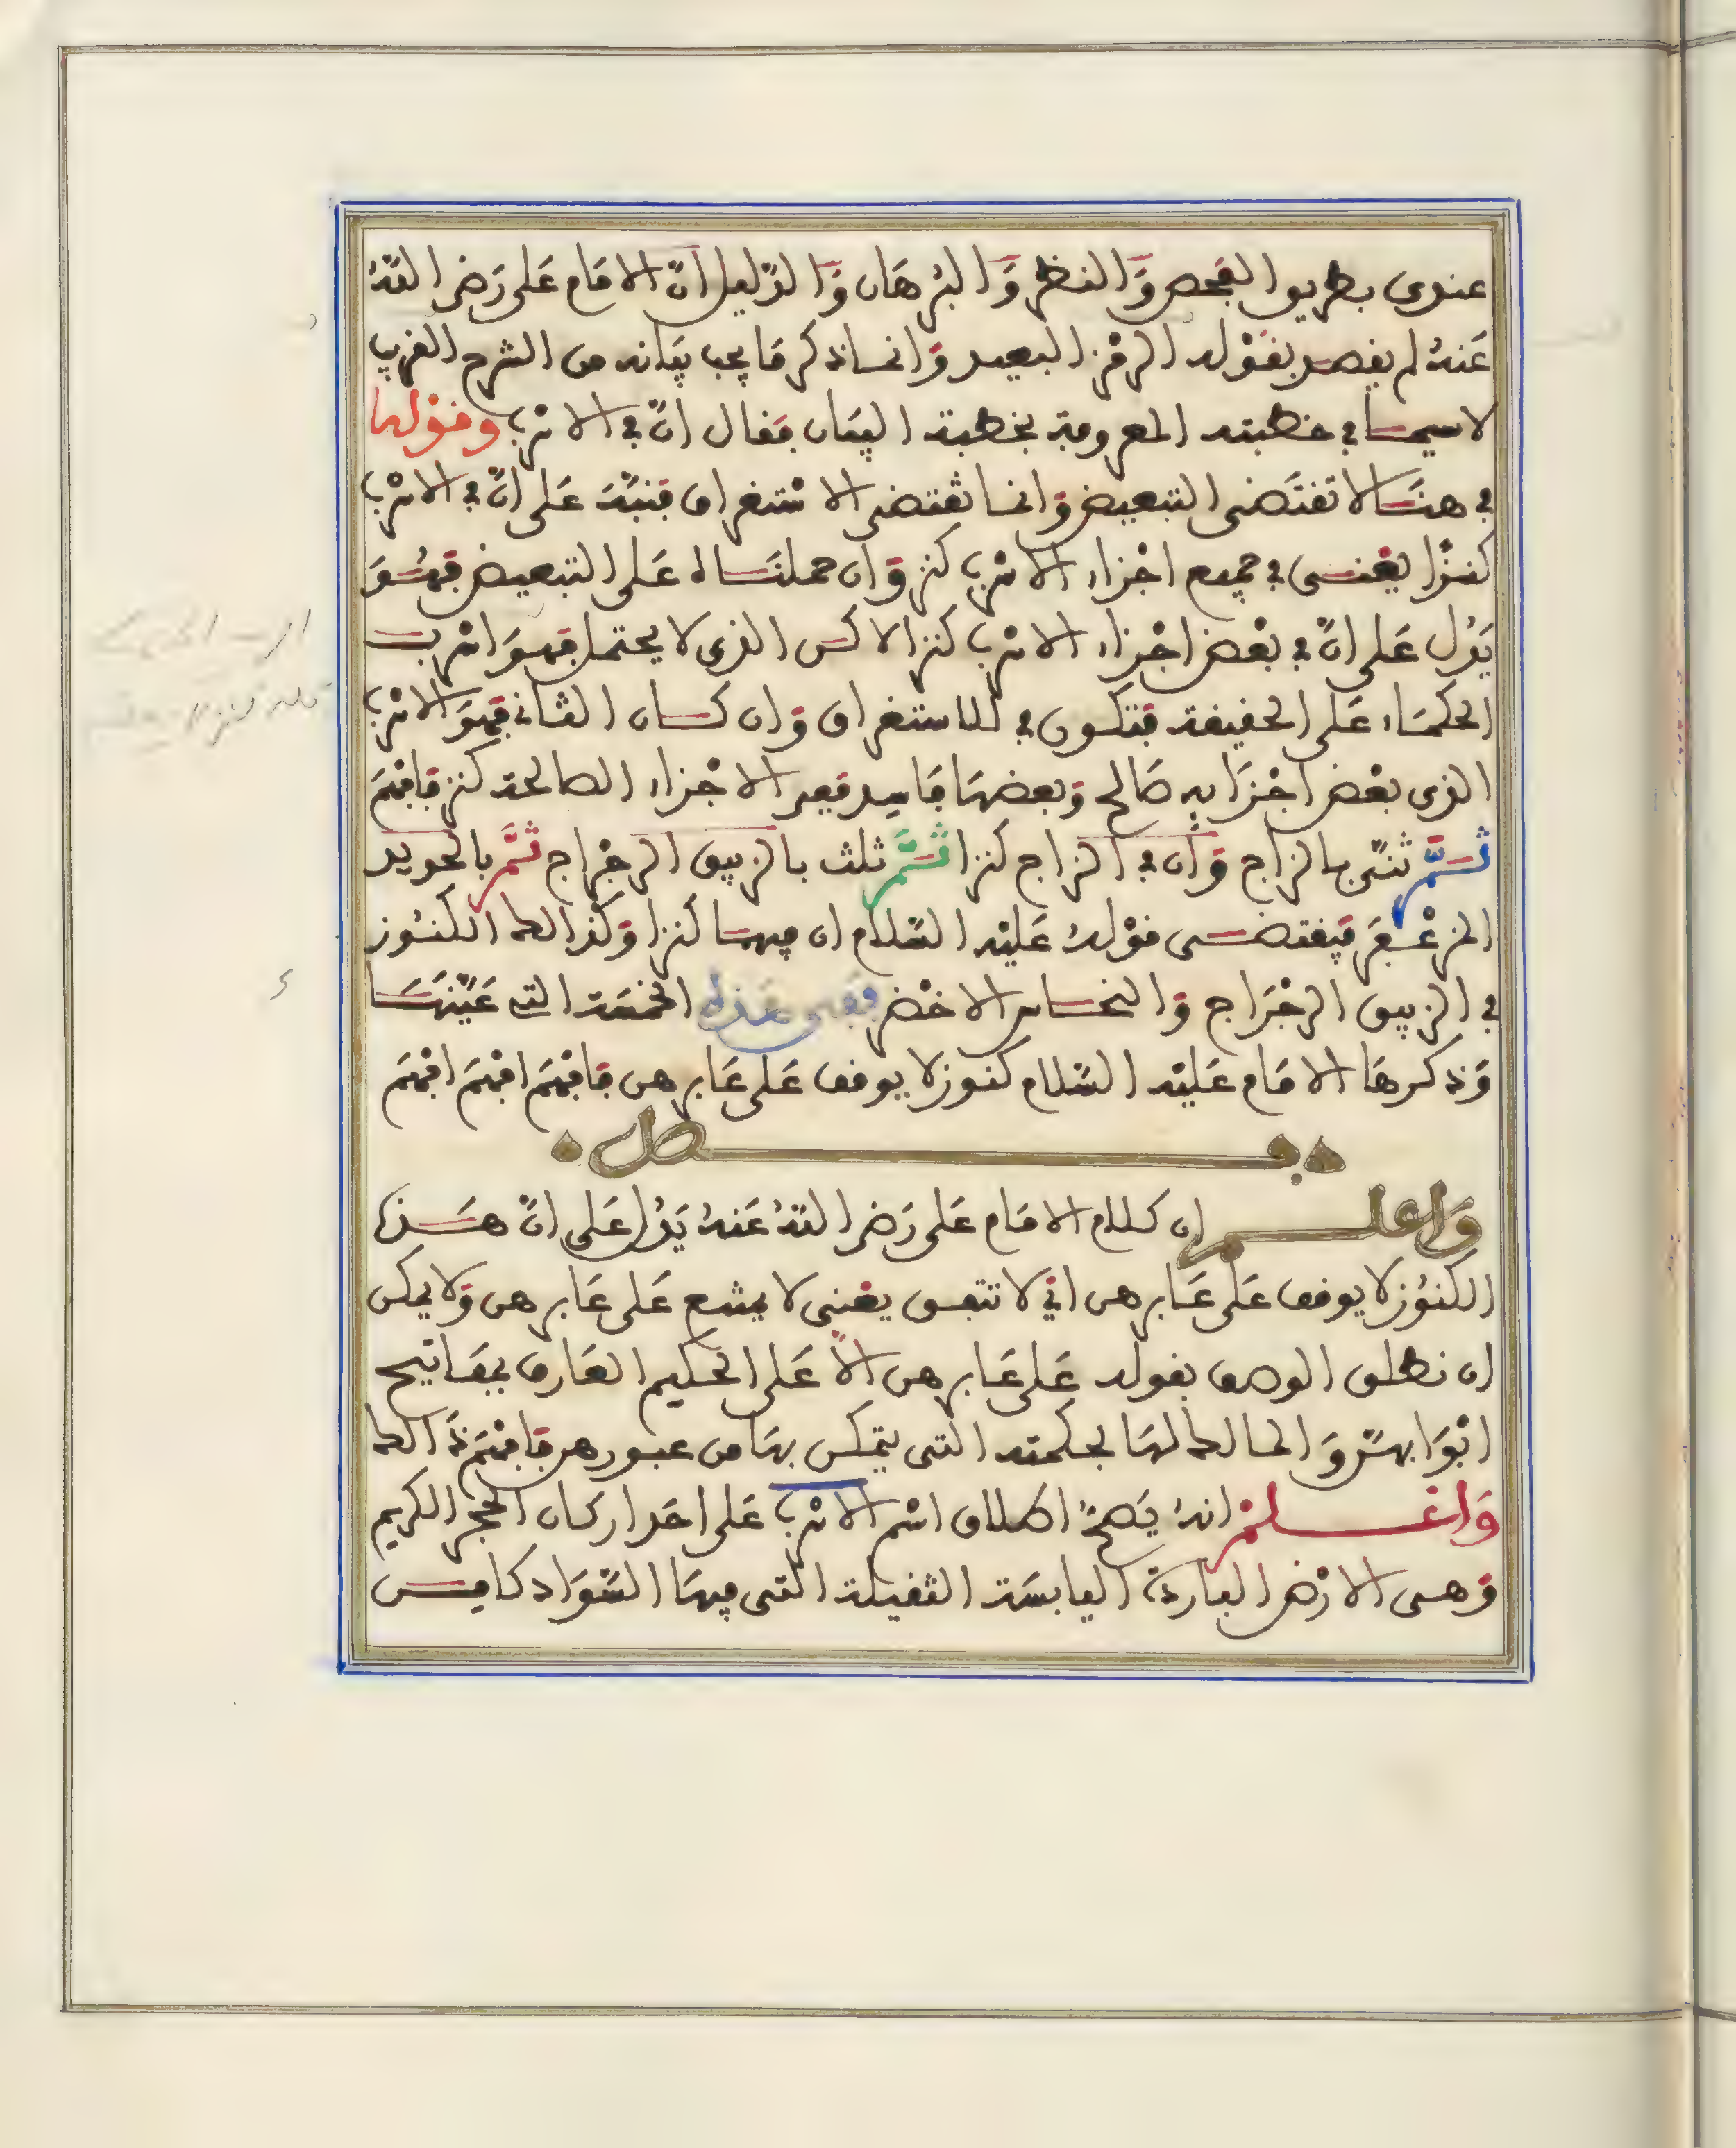 عندى بطريق الفحص وَالنظر وَالبُرهَان وَالدّليل انّ الامَام عَلى رَضى اللّهُ
عَنهُ لم يقصد بقوْله الرمْز البعيد وَانما ذكر مَا يجب بيَانه من الشرح القريب
لا سيما في خطبته المعروفة بخطبة البيَان فقال انّ في الاسْرب وقوْلها
في هنَا لا تقتَضى التبعيض وَانما تقتضى الاسْتغراق فنبّهَ عَلى انّ في الاسْرب
كنزًا يعْنى في جميع اجْزاء الاسْرب كنز وَان حملنَاه عَلى التبعيض فهُوَ
يَدُل عَلى انّ في بعْض اجْزاء الاسْرب كنز الاكن الذى لا يحتمل فهوَ اسْرب
الحكمَاء عَلى الحقيقة فتكون في للاستغراق وَان كان الثانى فهوَ الاسْرب
الذى بعْض اجْزَايه صَالح وَبعضهَا فَاسد ففى الاجْزاء الصالحة كنز فَافهَم
ثمَّ ثنّى بالزاج وَان في الزاج كنزا ثمَّ ثلث بالزيبق الرجْراج ثمَّ بالحديد
المزعْفَر فيقتضى قوْلهُ عَليْه السّلام ان فيهما كنزا وَكذالك الكنُوز
في الزيبق الرجْرَاج وَالنحاس الاخْضر ففى هَذه الخمسَة التى عَيّنهَا
وَذكرهَا الامَام عَليْه السّلام كنوز لا يوقف عَلى عَابرهن فَافهَم افهَم افهَم
فصل
وَاعلم ان كلام الامَام عَلى رَضى اللّهُ عَنهُ يَدُل عَلى انّ هَذه
الكنُوز لا يوقف عَلى عَابرهن اى لا تتبعق يعْنى لا يمتنع عَلى عَابرهن وَلا يمكن
ان نطلق الوصف بقوله عَلى عَابرهن الاّ عَلى الحكيم العَارف بمفَاتيح
ابْوَابهنّ وَالمالك لهَا بحكمته التى يتمكن بهَا من عبورهن فَافهَم ذَالك
وَاعْلمْ انهُ يَصحُّ اطلاق اسْم الاسْرب عَلى احَد اركان الحجر الكريم
وَهى الارْض البَاردَة اليَابسَة الثقيلة التى فيهَا السّوَاد كامن